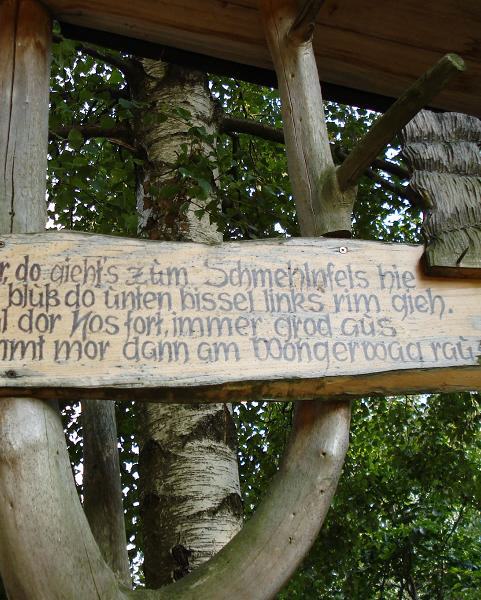 r, do gieht's zum Schmehlnfels hie
bluß do unten bissel links rim gieh.
l dor Nos fort, immer grod aus
mmt mor dann am Wongerwaag raus